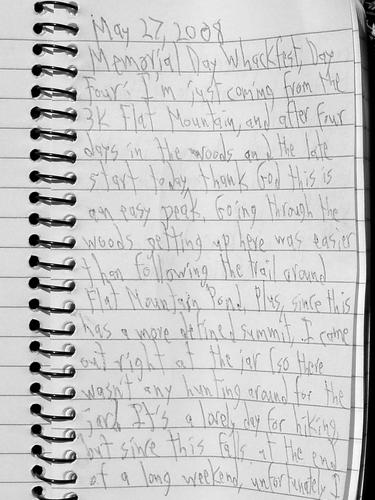 May 27, 2008
Memorial Day Whackfest, Day
Four: I'm just coming from the
3K Flat Mountain, and after four
days in the woods and the late
start today, thank God this is
an easy peak. Going through the
woods getting up here was easier
than following the trail around
Flat Mountain Pond. Plus, since this
has a more defined summit, I came
out right at the jar (so there
wasn't any hunting around for the
jar). It's a lovely day for hiking,
but since this falls at the end
of a long weekend, unfortunately I